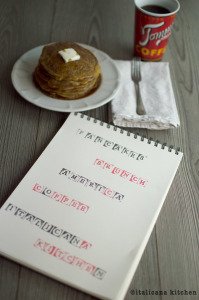 COFFEE
PANCAKES
BRUNCH
AMERICA
COFFEE
ITALICANA
KITCHEN
©italicana kitchen